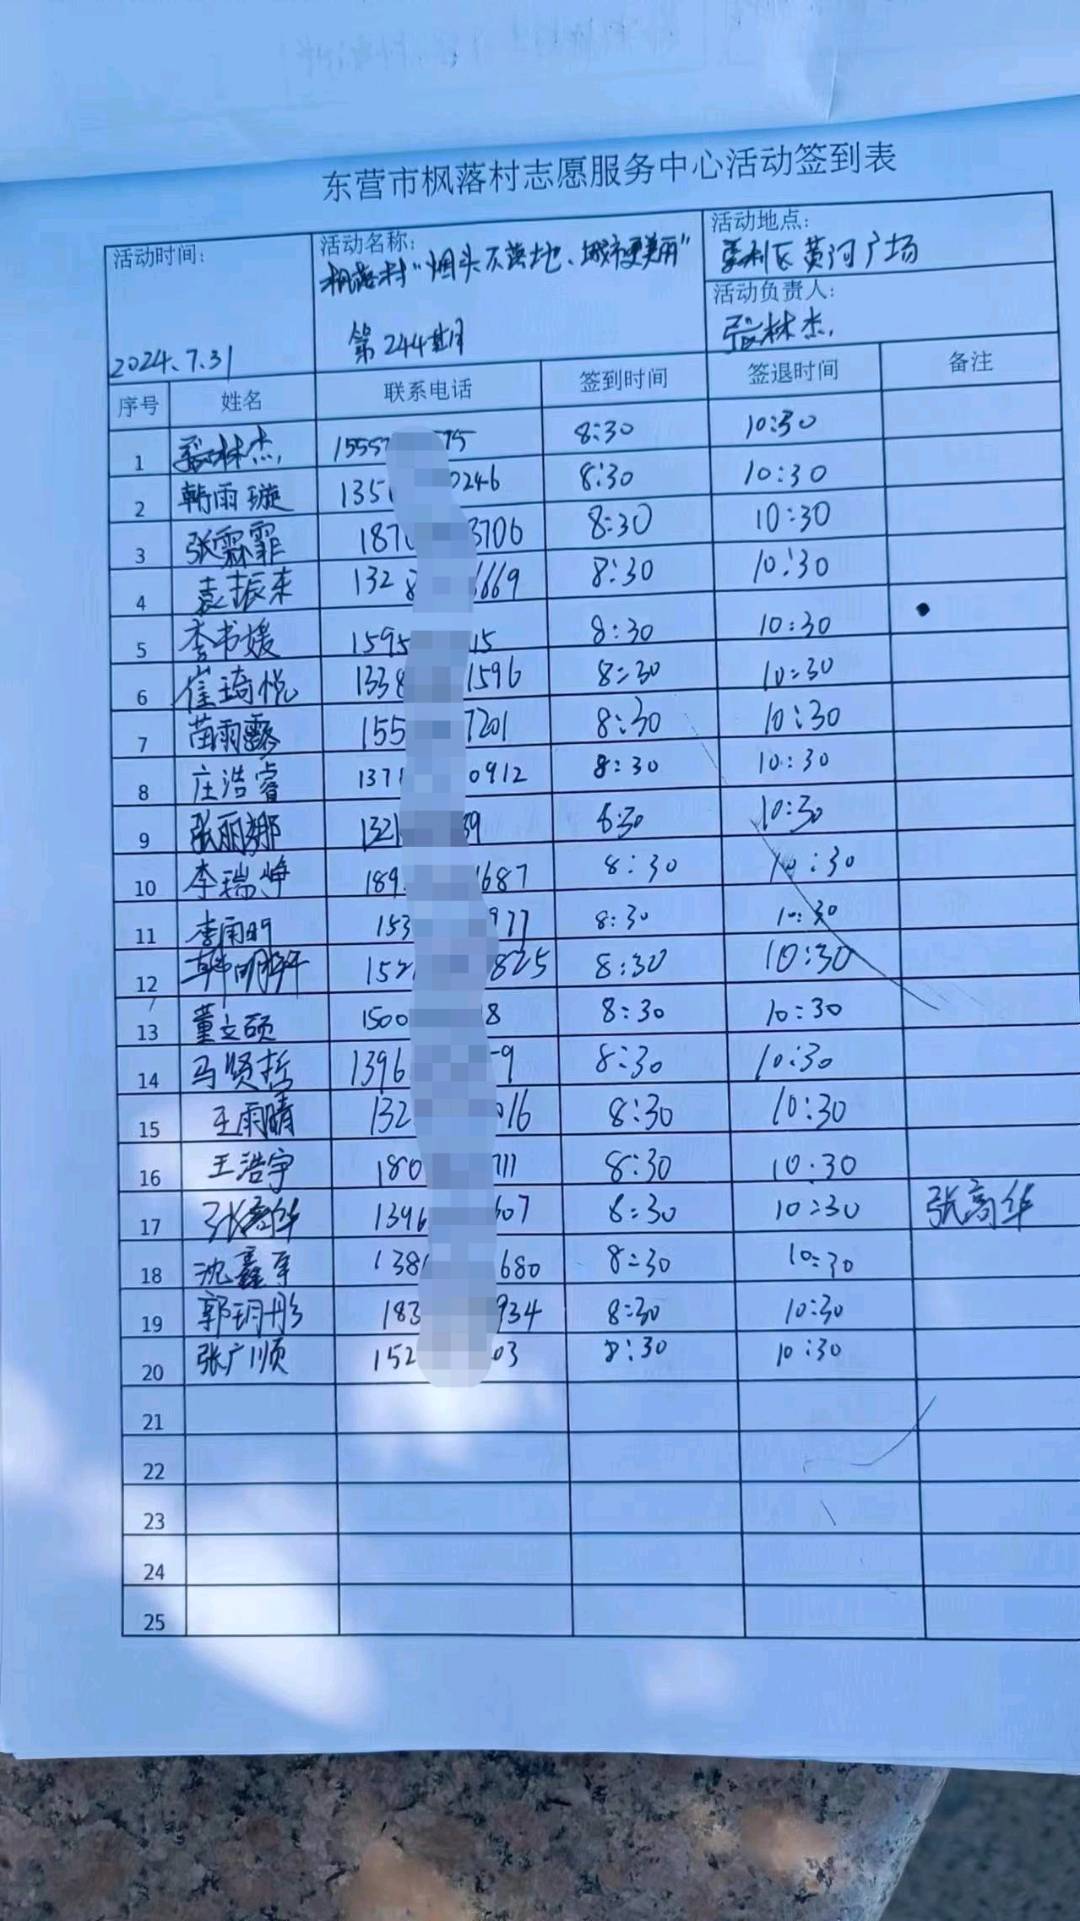 东营市枫落村志愿服务中心活动签到表
活动时间: 2024.7.31
活动名称: 枫落村“烟头不落地、城市更美丽” 第244期
活动地点: 垦利区黄河广场
活动负责人: 张林杰
序号 姓名 联系电话 签到时间 签退时间 备注
1 林杰 1555 75 8:30 10:30
2 韩雨璇 135 0246 8:30 10:30
3 张霖霏 187 3706 8:30 10:30
4 袁振来 132 6669 8:30 10:30
5 李书媛 1595 15 8:30 10:30
6 崔琦悦 1338 1596 8:30 10:30
7 苗雨露 155 7201 8:30 10:30
8 庄浩睿 137 0912 8:30 10:30
9 张丽娜 132 39 8:30 10:30
10 李瑞峥 189 1687 8:30 10:30
11 李雨明 153 977 8:30 10:30
12 韩明 152 825 8:30 10:30
13 董文硕 1500 8 8:30 10:30
14 马贤哲 1396 9 8:30 10:30
15 王雨晴 132 016 8:30 10:30
16 王浩宇 180 711 8:30 10:30
17 张高华 1396 607 8:30 10:30 张高华
18 沈鑫军 138 680 8:30 10:30
19 郭玥彤 183 934 8:30 10:30
20 张广顺 152 03 8:30 10:30
21
22
23
24
25